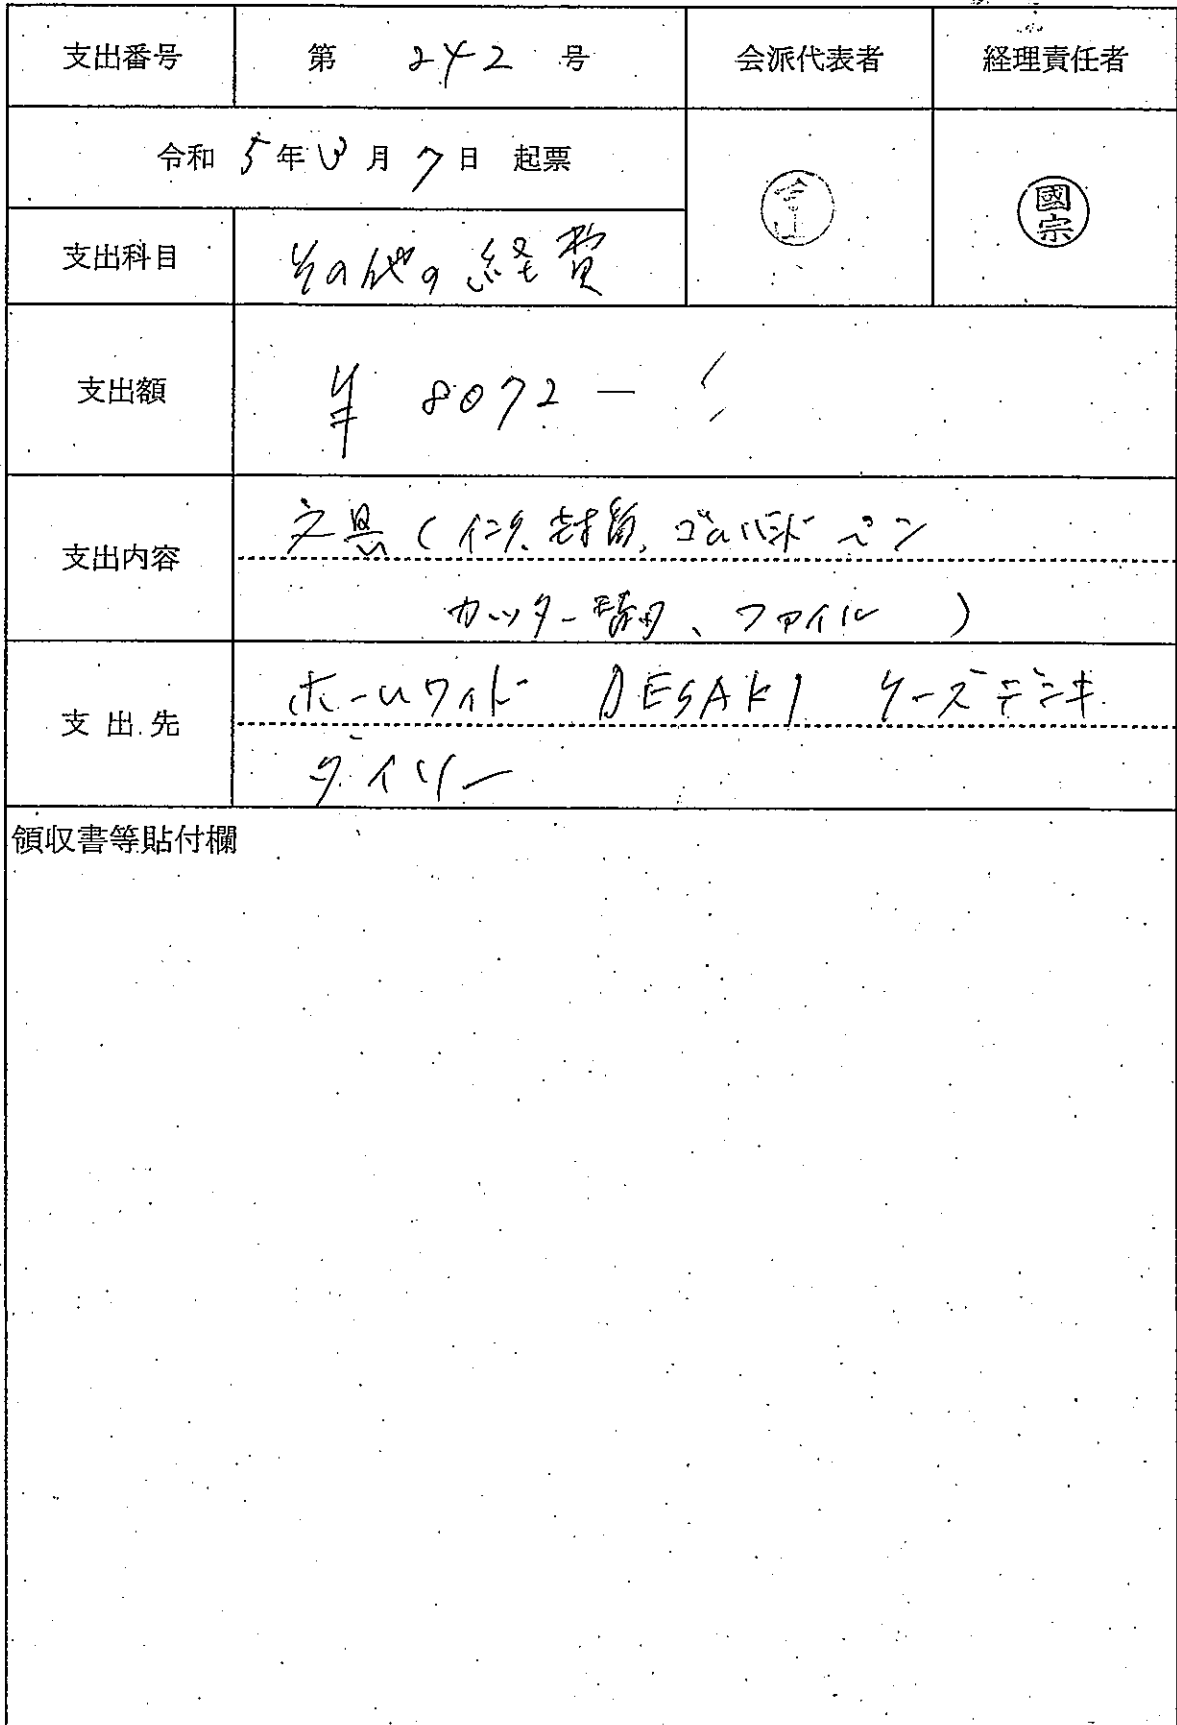 支出番号 第 242 号 会派代表者 経理責任者
令和 5年 3月 7日 起票
國宗
支出科目 その他の経費
支出額 ¥ 8072 ー
支出内容 文具(インク、封筒、ゴムバンド ペン
カッター替刃、ファイル )
支出先 ホームワイド DESAKI ケーズデンキ
ダイソー
領収書等貼付欄